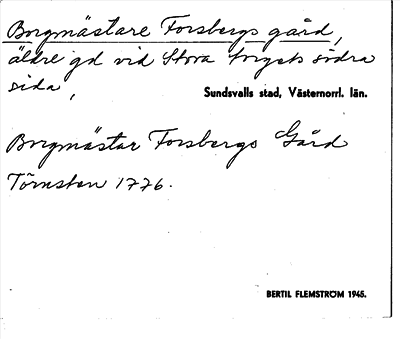 Borgmästare Forsbergs gård,
äldre gd vid Stora torgets södra
sida,
Sundsvalls stad, Västernorrl. län.
Borgmästar Forsbergs Gård
Törnsten 1776.
BERTIL FLEMSTRÖM 1945.